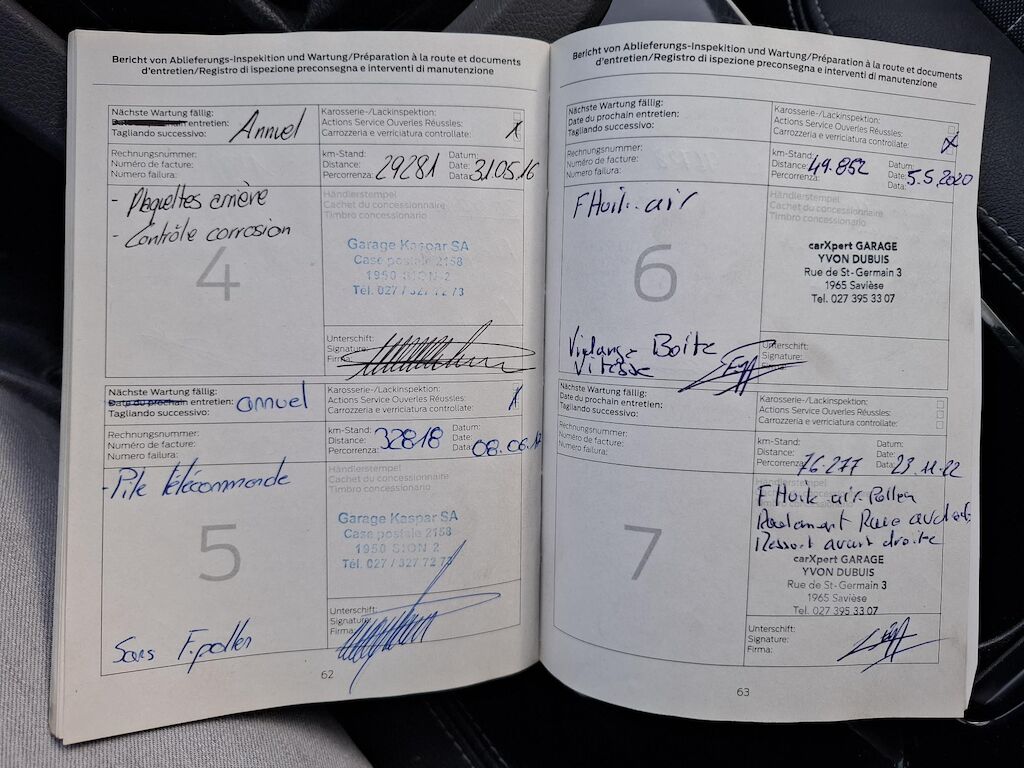 Bericht von Ablieferungs-Inspektion und Wartung/Préparation à la route et documents
d'entretien/Registro di ispezione preconsegna e interventi di manutenzione
Nächste Wartung fällig:
Date du prochain entretien:
Tagliando successivo:
Annuel
Karosserie-/Lackinspektion:
Actions Service Ouverles Réussles:
Carrozzeria e verriciatura controllate:
X
Rechnungsnummer:
Numéro de facture:
Numero failura:
km-Stand:
Distance:
Percorrenza:
29281
Datum:
Date:
Data:
31.05.16
- Plaquettes arrière
- Contrôle corrosion
4
Händlerstempel
Cachet du concessionnaire
Timbro concessionario
Garage Kaspar SA
Case postale 2158
1950 SION 2
Tél. 027 / 327 72 73
Unterschift:
Signature:
Firma:
Nächste Wartung fällig:
Date du prochain entretien:
Tagliando successivo:
annuel
Karosserie-/Lackinspektion:
Actions Service Ouverles Réussles:
Carrozzeria e verriciatura controllate:
X
Rechnungsnummer:
Numéro de facture:
Numero failura:
km-Stand:
Distance:
Percorrenza:
32818
Datum:
Date:
Data:
08.06.17
- Pile télécommande
5
Sans F.pollen
Händlerstempel
Cachet du concessionnaire
Timbro concessionario
Garage Kaspar SA
Case postale 2158
1950 SION 2
Tél. 027 / 327 72 73
Unterschift:
Signature:
Firma:
62
Bericht von Ablieferungs-Inspektion und Wartung/Préparation à la route et documents
d'entretien/Registro di ispezione preconsegna e interventi di manutenzione
Nächste Wartung fällig:
Date du prochain entretien:
Tagliando successivo:
Karosserie-/Lackinspektion:
Actions Service Ouverles Réussles:
Carrozzeria e verriciatura controllate:
X
Rechnungsnummer:
Numéro de facture:
Numero failura:
km-Stand:
Distance:
Percorrenza:
49.852
Datum:
Date:
Data:
5.5.2020
F Huile air
6
Vidange Boite
Vitesse
Händlerstempel
Cachet du concessionnaire
Timbro concessionario
carXpert GARAGE
YVON DUBUIS
Rue de St-Germain 3
1965 Savièse
Tel. 027 395 33 07
Unterschift:
Signature:
Firma:
Nächste Wartung fällig:
Date du prochain entretien:
Tagliando successivo:
Karosserie-/Lackinspektion:
Actions Service Ouverles Réussles:
Carrozzeria e verriciatura controllate:
Rechnungsnummer:
Numéro de facture:
Numero failura:
km-Stand:
Distance:
Percorrenza:
76.277
Datum:
Date:
Data:
23.11.22
7
Händlerstempel
F Huile air Pollen
Roulement Roue
Ressort avant droite
carXpert GARAGE
YVON DUBUIS
Rue de St-Germain 3
1965 Savièse
Tel. 027 395 33 07
Unterschift:
Signature:
Firma:
63